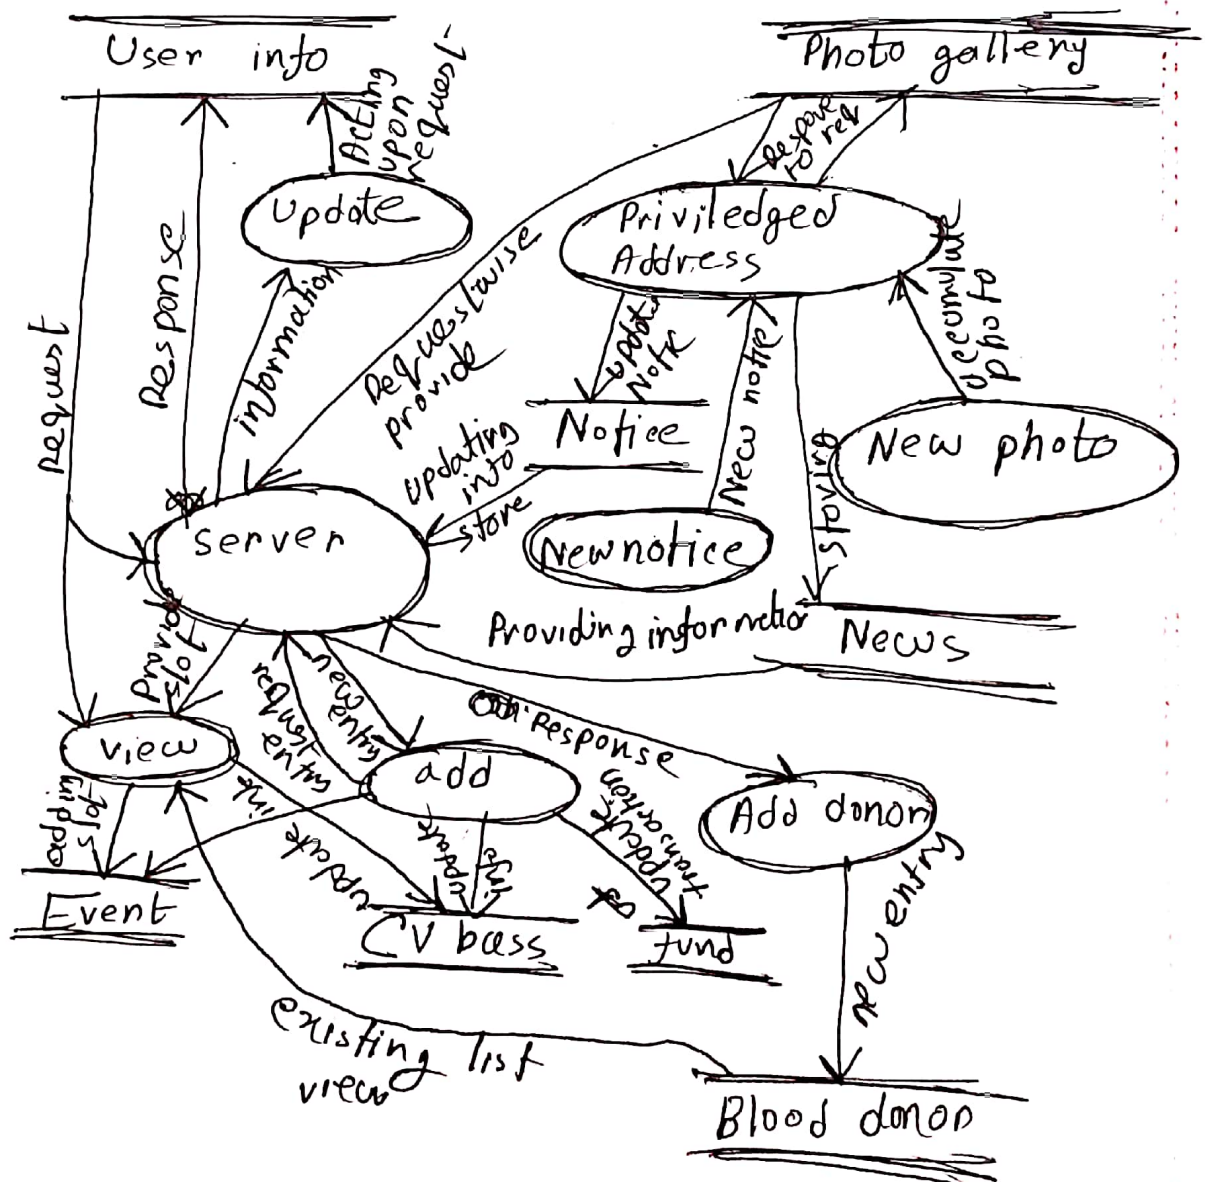 User info
Photo gallery
Acting
upon
request
Respove
to req
Update
Priviledged
Address
request
Response
information
Request wise
provide
update
Notic
New notice
accumulate
photo
Notice
New photo
updating
into
store
storing
server
New notice
Providing information
News
Provide
slot
request
entry
new
entry
Response
view
add
Add donor
adding
slot
link
update
update
link
update
transaction
new entry
Event
CV bass
fund
existing list
view
Blood donor